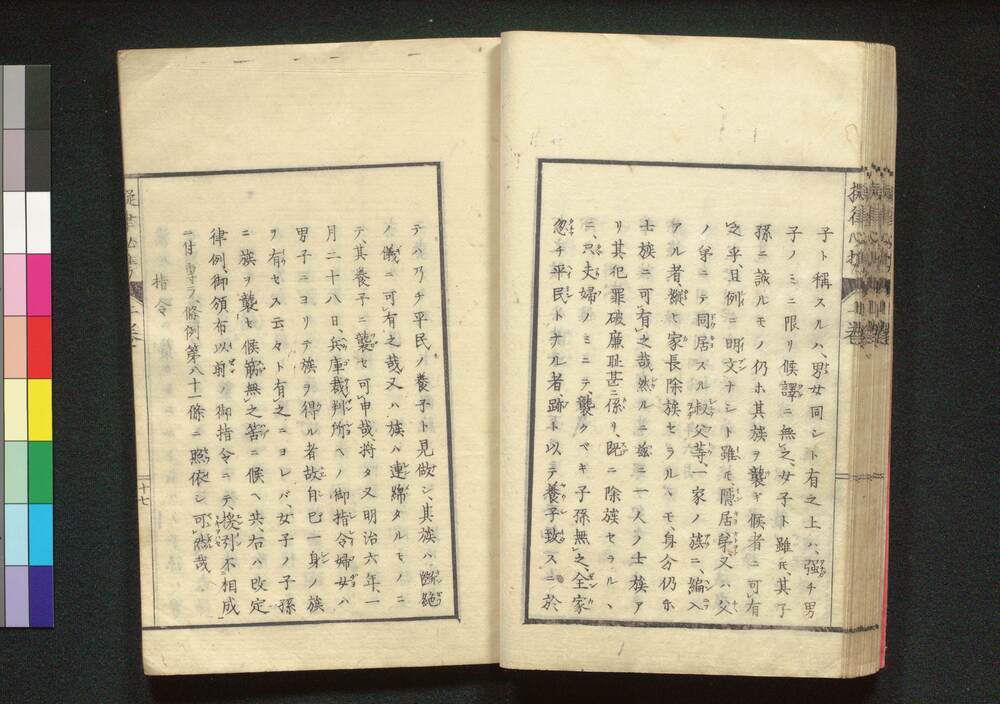 子ト稱スルハ、男女同シト有之上ハ、強チ男
子ノミニ限リ候譯ニ無之、女子ト雖氏其子
孫ニ誠ルモノ仍ホ其族ヲ襲ギ候者ニ可有
之乎、且例ニ明文ナシト雖モ、隱居弟又ハ父
ノ弟ニテ同居スル叔父等、一家ノ族ニ、編入
アル者、縱ヒ家長除族セラルヽモ、身分仍ホ
士族ニ可有之哉、然ルニ茲ニ一人ノ士族ア
リ其犯罪破廉耻甚ニ係リ、既ニ除族セラル、
ニ、只夫婦ノミニテ、襲クベキ子孫無之、全家
忽チ平民トナル者、跡ト以テ養子致スニ於
テハ乃チ平民ノ養子ト見做シ、其族ハ斷絶
ノ儀ニ可有之哉又ハ族ハ連綿タルモノニ
テ、其養子ニ襲セ可申哉、将タ又明治六年、一
月二十八日、兵庫裁判所ヘノ御指令婦女ハ
男子ニヨリテ族ヲ得ル者故、自己一身ノ族
ヲ有セス云々ト有之ニヨレバ、女子ノ子孫
ニ族ヲ襲セ候筋無之筈ニ候ヘ共、右ハ改定
律例、御頒布以前ノ御指令ニテ、援引不相成
ニ付條例第八十一條ニ照依シ可然哉、
指令
十七